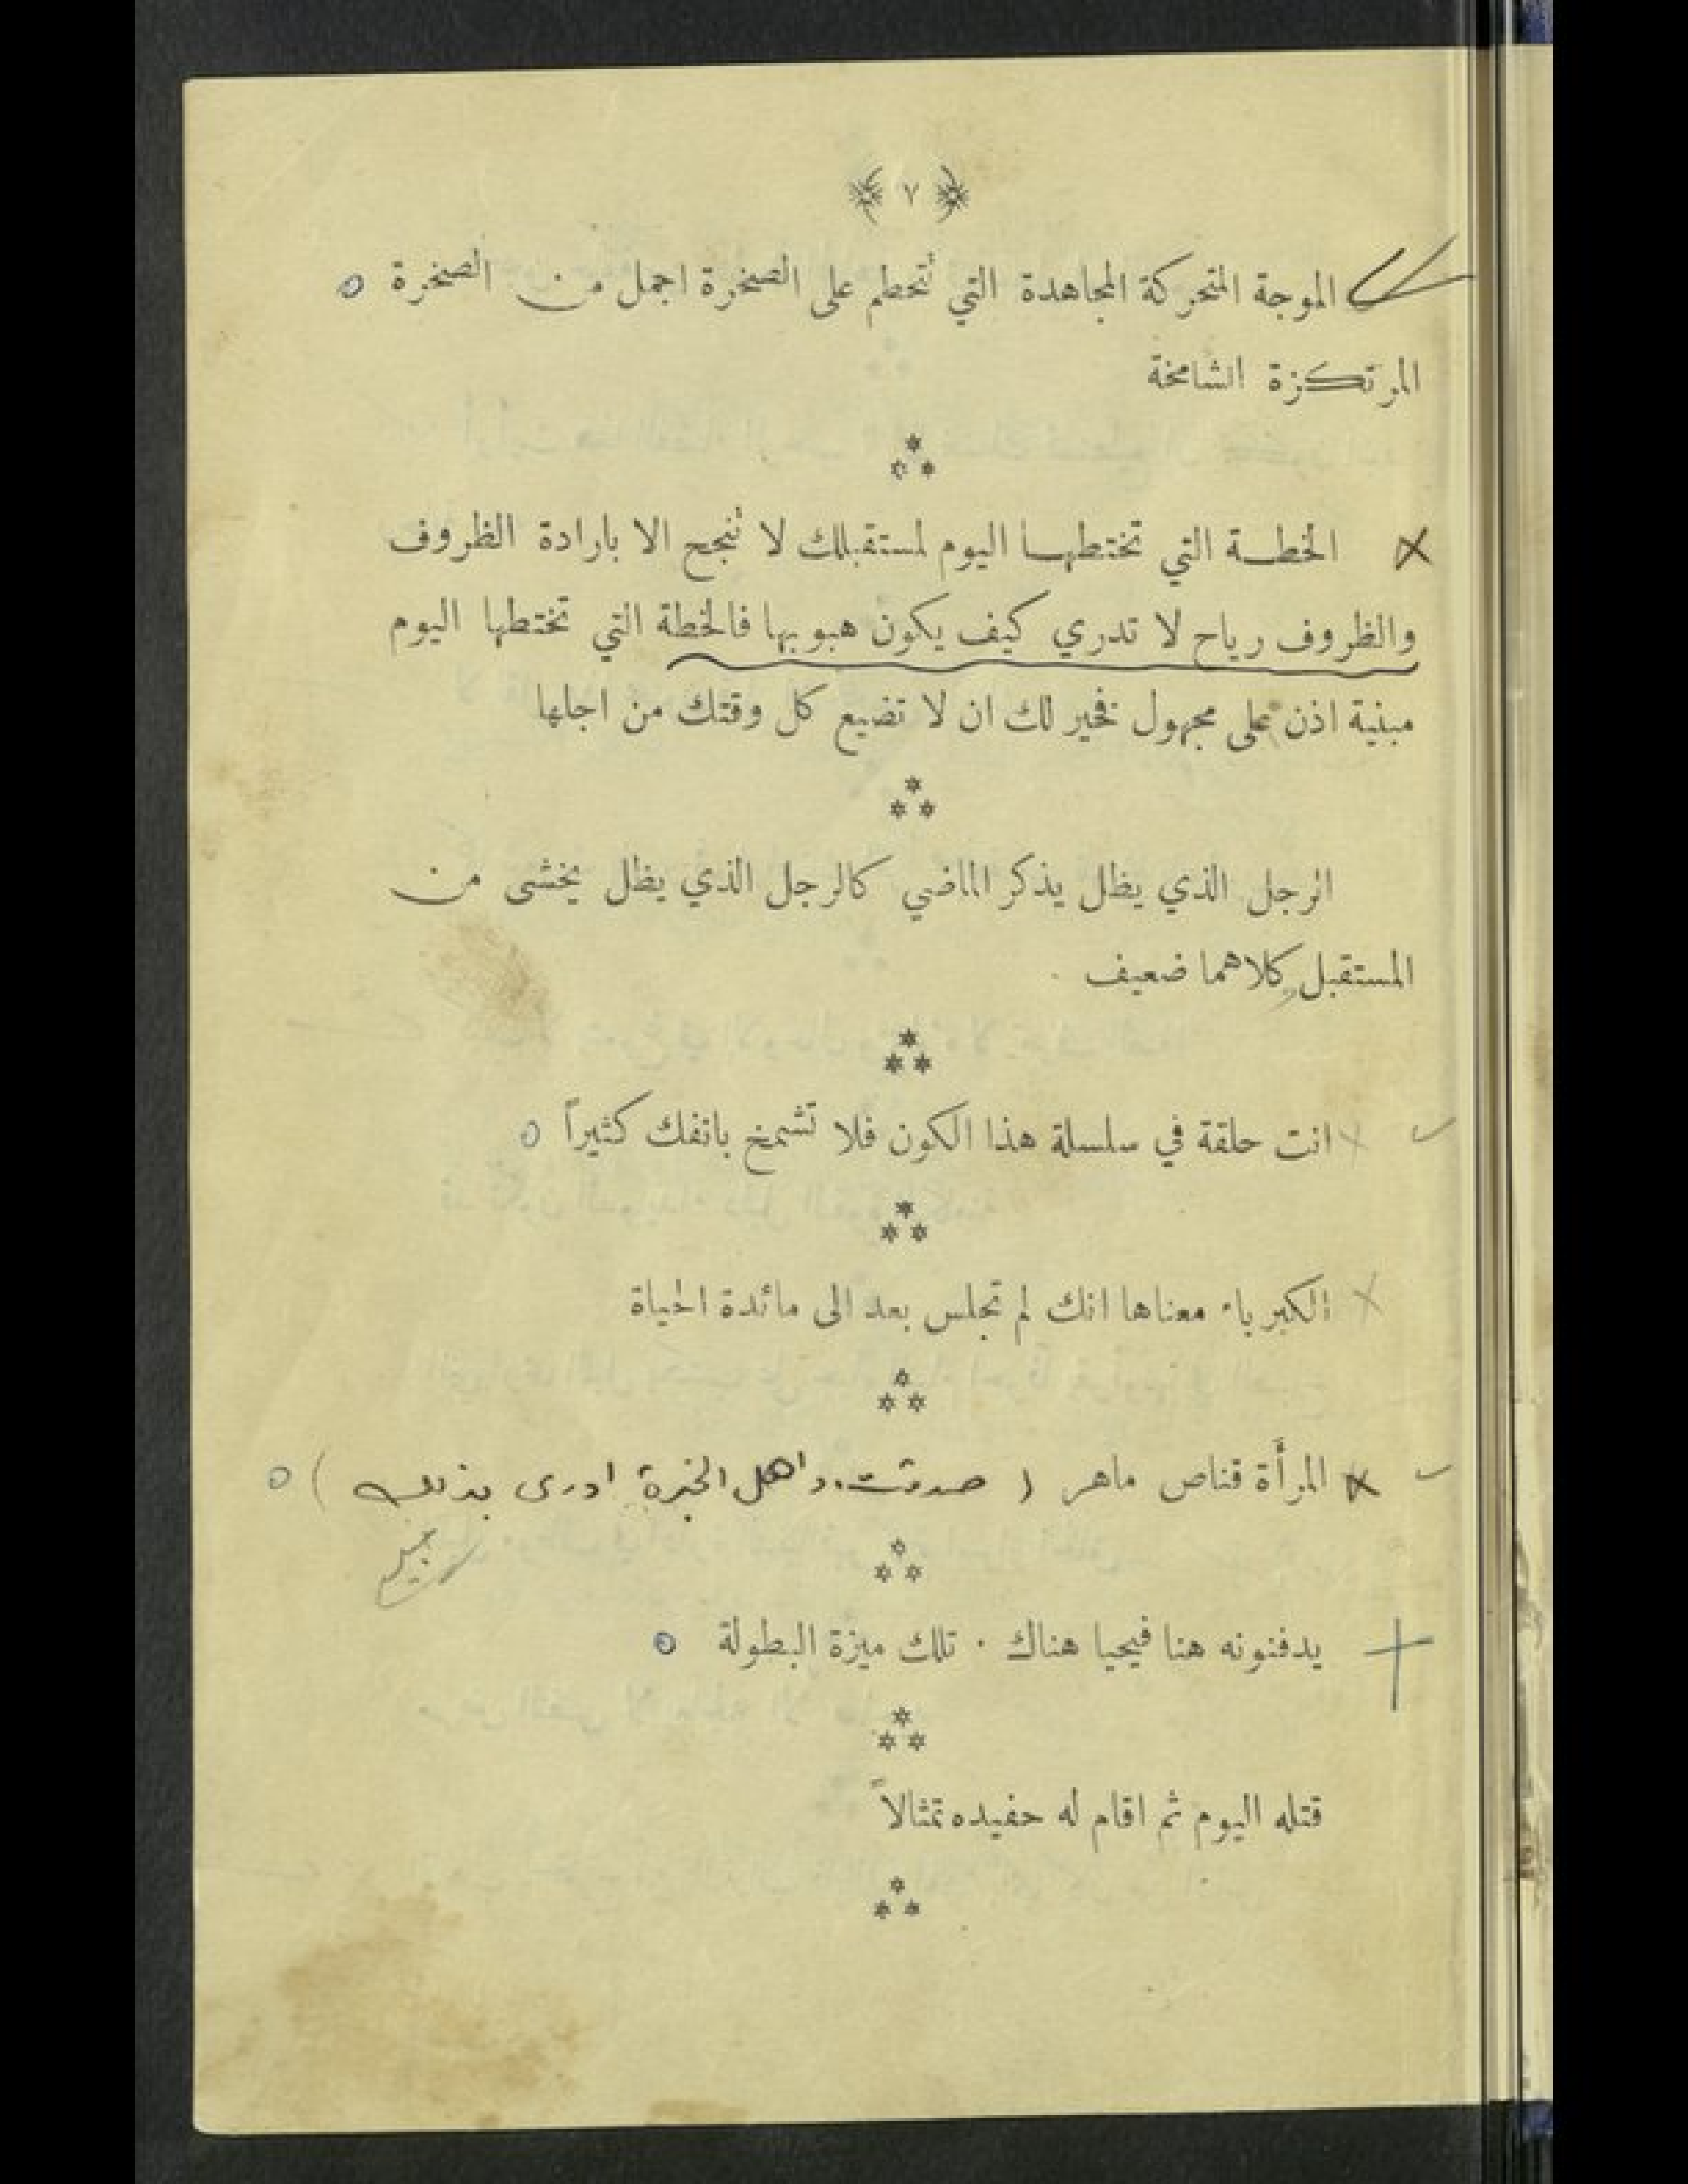 ٧
الموجة المتحركة المجاهدة التي تتحطم على الصخرة اجمل من الصخرة
المرتكزة الشامخة
الخطة التي تختطها اليوم لمستقبلك لا تنجح الا بارادة الظروف
والظروف رياح لا تدري كيف يكون هبوبها فالخطة التي تختطها اليوم
مبنية اذن على مجهول فخير لك ان لا تضيع كل وقتك من اجلها
الرجل الذي يظل يذكر الماضي كالرجل الذي يظل يخشى من
المستقبل كلاهما ضعيف .
انت حلقة في سلسلة هذا الكون فلا تشمخ بانفك كثيراً
الكبرياء معناها انك لم تجلس بعد الى مائدة الحياة
المرأة قناص ماهر ( صدقت. واهل الخبرة ادرى بذلك )
يدفنونه هنا فيحيا هناك . تلك ميزة البطولة
قتله اليوم ثم اقام له حفيده تمثالاً